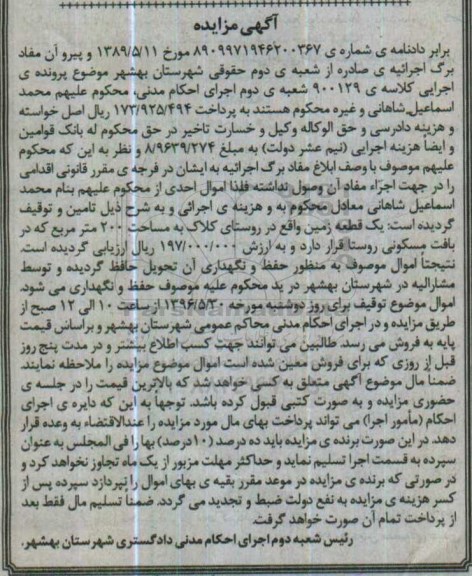 آگهی مزایده
برابر دادنامه ی شماره ی ۸۹۰۹۹۷۱۹۴۶۲۰۰۳۶۷ مورخ ۱۳۸۹/۵/۱۱ و پیرو آن مفاد
برگ اجرائیه ی صادره از شعبه ی دوم حقوقی شهرستان بهشهر موضوع پرونده ی
اجرایی کلاسه ی ۹۰۰۱۲۹ شعبه ی دوم اجرای احکام مدنی، محکوم علیهم محمد
اسماعیل شاهانی و غیره محکوم هستند به پرداخت ۱۷۳/۹۲۵/۴۹۴ ریال اصل خواسته
و هزینه دادرسی و حق الوکاله وکیل و خسارت تاخیر در حق محکوم له بانک قوامین
و ایضا هزینه اجرایی (نیم عشر دولت) به مبلغ ۸/۹۶۳۹/۲۷۴ و نظر به این که محکوم
علیهم موصوف با وصف ابلاغ مفاد برگ اجرائیه به ایشان در فرجه ی مقرر قانونی اقدامی
را در جهت اجراء مفاد آن وصول نداشته فلذا اموال احدی از محکوم علیهم بنام محمد
اسماعیل شاهانی معادل محکوم به و هزینه ی اجرائی و به شرح ذیل تامین و توقیف
گردیده است: یک قطعه زمین واقع در روستای کلاک به مساحت ۲۰۰ متر مربع که در
بافت مسکونی روستا قرار دارد و به ارزش ۱۹۷/۰۰۰/۰۰۰ ریال ارزیابی گردیده است.
نتیجتاً اموال موصوف به منظور حفظ و نگهداری آن تحویل حافظ گردیده و توسط
مشارالیه در شهرستان بهشهر در ید محکوم علیه موصوف حفظ و نگهداری می شود.
اموال موضوع توقیف برای روز دوشنبه مورخه ۱۳۹۶/۵/۳۰ از ساعت ۱۰ الی ۱۲ صبح از
طریق مزایده و در اجرای احکام مدنی محاکم عمومی شهرستان بهشهر و براساس قیمت
پایه به فروش می رسد. طالبین می توانند جهت کسب اطلاع بیشتر و در مدت پنج روز
قبل از روزی که برای فروش معین شده است اموال موضوع مزایده را ملاحظه نمایند.
ضمنا مال موضوع آگهی متعلق به کسی خواهد شد که بالاترین قیمت را در جلسه ی
حضوری مزایده و به صورت کتبی قبول کرده باشد. توجهاً به این که دایره ی اجرای
احکام (مأمور اجرا) می تواند پرداخت بهای مال مورد مزایده را عندالاقتضاء به وعده قرار
دهد. در این صورت برنده ی مزایده باید ده درصد (۱۰درصد) بها را فی المجلس به عنوان
سپرده به قسمت اجرا تسلیم نماید و حداکثر مهلت مزبور از یک ماه تجاوز نخواهد کرد و
در صورتی که برنده ی مزایده در موعد مقرر بقیه ی بهای اموال را نپردازد سپرده پس از
کسر هزینه ی مزایده به نفع دولت ضبط و تجدید می گردد. ضمنا تسلیم مال فقط بعد
از پرداخت تمام آن صورت خواهد گرفت.
رئیس شعبه دوم اجرای احکام مدنی دادگستری شهرستان بهشهر.